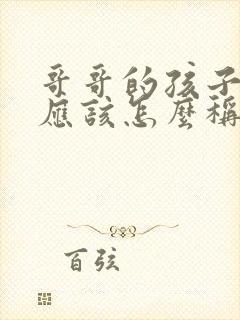 哥哥的孩子
應該怎麼稱
百弦